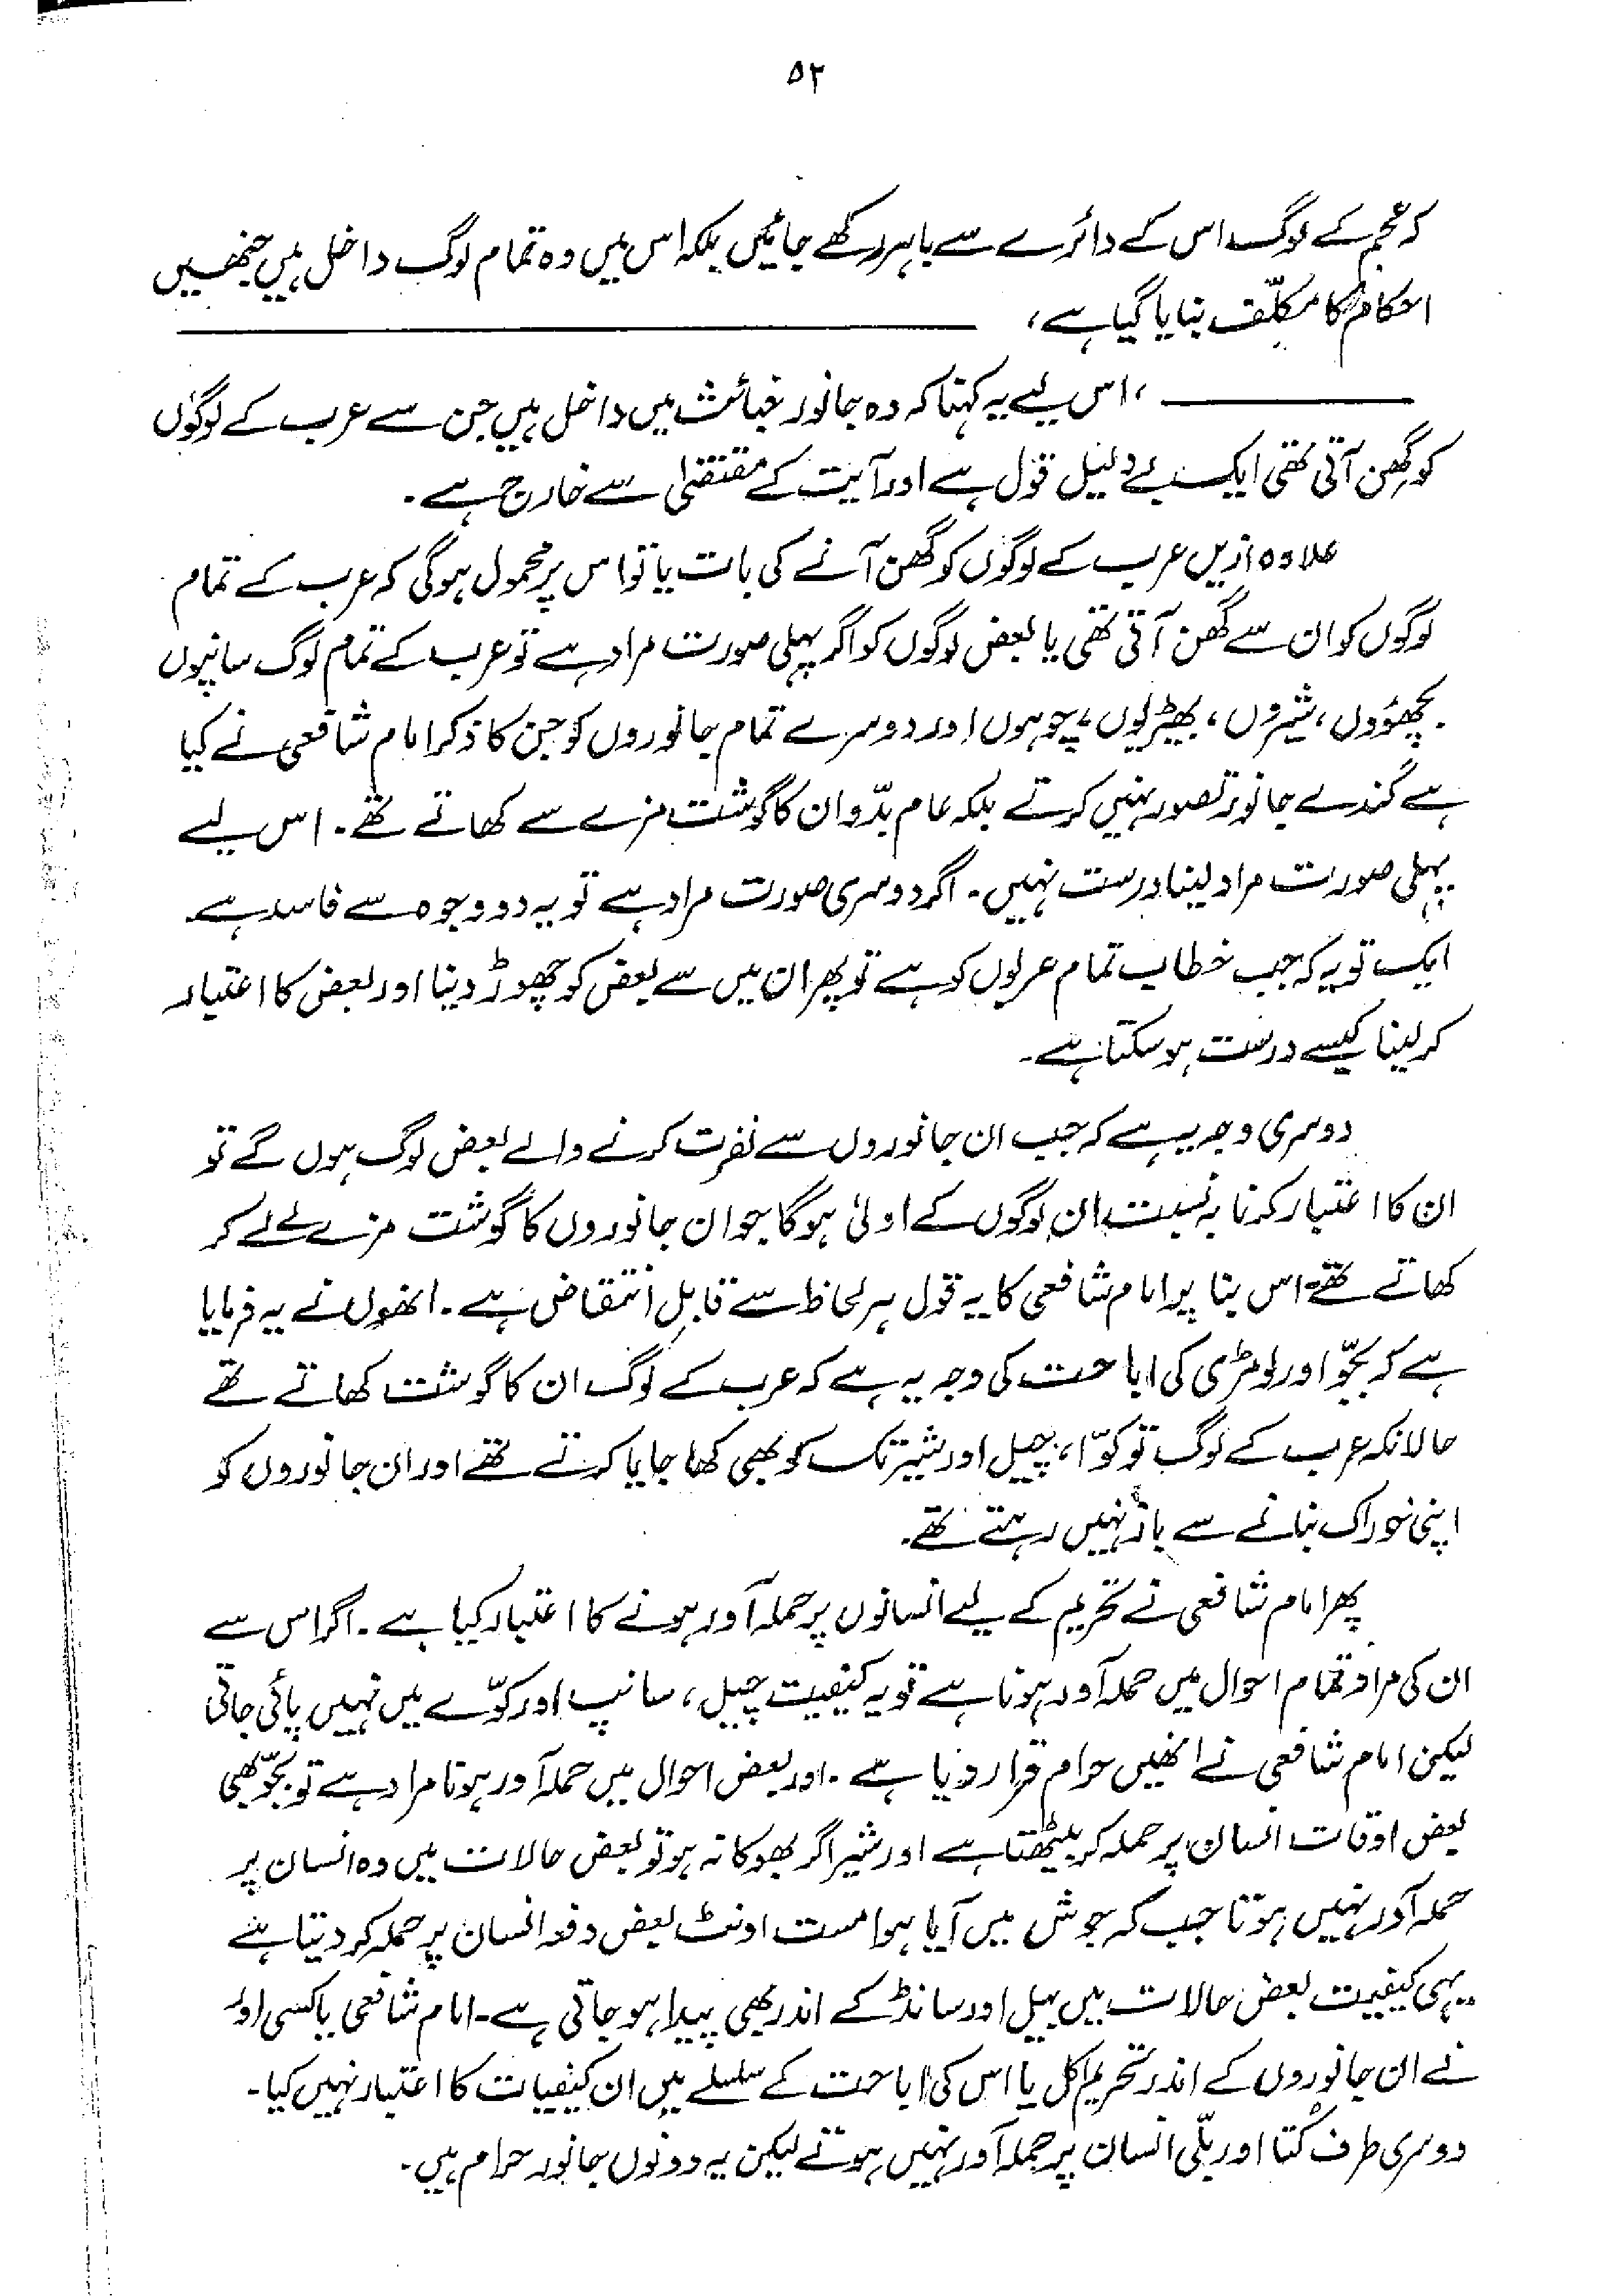 ۵۲
کہ عجم کے لوگ اس کے دائرے سے باہر رکھے جائیں بلکہ اس میں وہ تمام لوگ داخل ہیں جنھیں
احکام کا مکلّف بنایا گیا ہے،
، اس لیے یہ کہنا کہ وہ جانور خبائث میں داخل ہیں جن سے عرب کے لوگوں
کو گھِن آتی تھی ایک بے دلیل قول ہے اور آیت کے مقتضیٰ سے خارج ہے۔
علاوہ ازیں عرب کے لوگوں کو گھن آنے کی بات یا تو اس پر محمول ہوگی کہ عرب کے تمام
لوگوں کو ان سے گھن آتی تھی یا بعض لوگوں کو اگر پہلی صورت مراد ہے تو عرب کے تمام لوگ سانپوں
بچھوؤں، شیروں، بھیڑیوں، چوہوں اور دوسرے تمام جانوروں کو جن کا ذکر امام شافعی نے کیا
ہے گندے جانور تصور نہیں کرتے بلکہ عام بدّو ان کا گوشت مزے سے کھاتے تھے۔ اس لیے
پہلی صورت مراد لینا درست نہیں۔ اگر دوسری صورت مراد ہے تو یہ دو وجوہ سے فاسد ہے۔
ایک تو یہ کہ جب خطاب تمام عربوں کو ہے تو پھر ان میں سے بعض کو چھوڑ دینا اور بعض کا اعتبار
کر لینا کیسے درست ہو سکتا ہے۔
دوسری وجہ یہ ہے کہ جب ان جانوروں سے نفرت کرنے والے بعض لوگ ہوں گے تو
ان کا اعتبار کرنا بہ نسبت ان لوگوں کے اولیٰ ہوگا جو ان جانوروں کا گوشت مزے لے لے کر
کھاتے تھے۔ اس بنا پر امام شافعی کا یہ قول ہر لحاظ سے قابلِ انتقاض ہے۔ انھوں نے یہ فرمایا
ہے کہ بجّو اور لومڑی کی اباحت کی وجہ یہ ہے کہ عرب کے لوگ ان کا گوشت کھاتے تھے
حالانکہ عرب کے لوگ تو کوّا، چیل اور شیر تک کو بھی کھا جایا کرتے تھے اور ان جانوروں کو
اپنی خوراک بنانے سے باز نہیں رہتے تھے۔
پھر امام شافعی نے تحریم کے لیے انسانوں پر حملہ آور ہونے کا اعتبار کیا ہے۔ اگر اس سے
ان کی مراد تمام احوال میں حملہ آور ہونا ہے تو یہ کیفیت چیل، سانپ اور کوّے میں نہیں پائی جاتی
لیکن امام شافعی نے انھیں حرام قرار دیا ہے۔ اور بعض احوال میں حملہ آور ہونا مراد ہے تو بجّو بھی
بعض اوقات انسان پر حملہ کر بیٹھتا ہے اور شیر اگر بھوکا نہ ہو تو بعض حالات میں وہ انسان پر
حملہ آور نہیں ہوتا جب کہ جوش میں آیا ہوا مست اونٹ بعض دفعہ انسان پر حملہ کر دیتا ہے
یہی کیفیت بعض حالات میں بیل اور سانڈ کے اندر بھی پیدا ہو جاتی ہے۔ امام شافعی یا کسی اور
نے ان جانوروں کے اندر تحریم اکل یا اس کی اباحت کے سلسلے میں ان کیفیات کا اعتبار نہیں کیا۔
دوسری طرف کُتا اور بلّی انسان پر حملہ آور نہیں ہوتے لیکن یہ دونوں جانور حرام ہیں۔